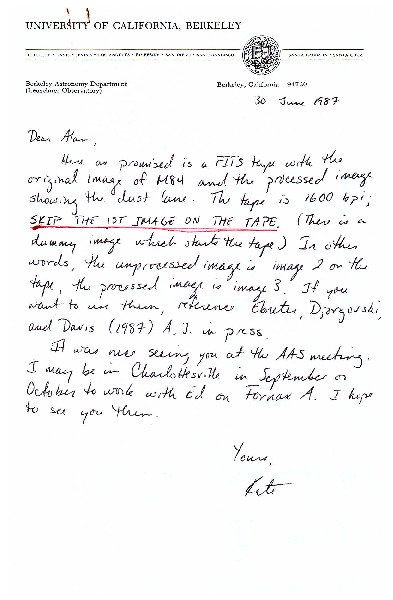 UNIVERSITY OF CALIFORNIA, BERKELEY
BERKELEY • DAVIS • IRVINE • LOS ANGELES • RIVERSIDE • SAN DIEGO • SAN FRANCISCO
SANTA BARBARA • SANTA CRUZ
Berkeley Astronomy Department
(Leuschner Observatory)
Berkeley, California 94720
30 June 1987
Dear Alan,
Here as promised is a FITS tape with the
original image of M84 and the processed image
showing the dust lane. The tape is 1600 bpi;
SKIP THE 1ST IMAGE ON THE TAPE. (There is a
dummy image which starts the tape.) In other
words, the unprocessed image is image 2 on the
tape, the processed image is image 3. If you
want to use them, reference Ebneter, Djorgovski,
and Davis (1987) A.J. in press.
It was nice seeing you at the AAS meeting.
I may be in Charlottesville in September or
October to work with Ed on Fornax A. I hope
to see you then.
Yours,
Kate